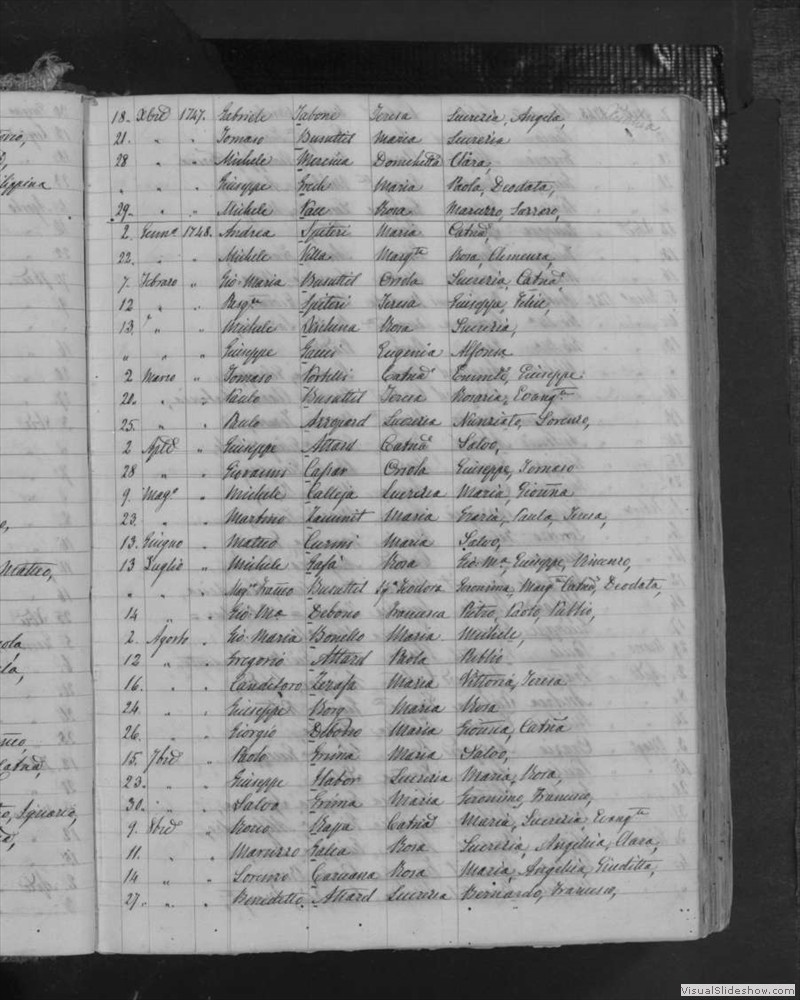 18. Xbre 1747. Gabriele Tabone Teresa Lucrezia, Angela,
21. " " Tomaso Busuttil Maria Lucrezia
28 " " Michele Mercieca Domenica Clara,
" " " Giuseppe Grech Maria Paola, Deodata,
29. " " Michele Pace Rosa
2. Genn° 1748. Andrea Spiteri Maria Catna
22. " " Michele Villa Margta Rosa, Clemenza,
7. Febraro " Gio Maria Busuttil Orsola Lucrezia, Catna
12 " " Spiteri Teresa Giuseppa, Felice,
13. " " Michele Rosa Lucrezia,
" " " Giuseppe Gauci Eugenia Alfonsa
2 Marzo " Tomaso Portelli Catna Giuseppe
20. " " Paulo Busuttil Teresa Rosaria, Evangta
25. " " Paulo Azzopard Lucrezia Nunziato, Lorenzo,
2 Aple " Giuseppe Attard Catna Salvo,
28 " " Giovanni Caspar Orsola Giuseppe, Tomaso
9. Mago " Michele Calleja Lucrezia Maria, Gionna
23. " " Martino Zammit Maria Grazia, Paula, Teresa,
13. Giugno " Matteo Curmi Maria Salvo,
13 Luglio " Michele Safà Rosa Gio: Ma, Giuseppe, Vincenzo,
" " " Busuttil Teodora Geronima, Margta Catna, Deodata,
14 " " Gio: Ma Debono Francesca Pietro, Paolo, Publio,
2. Agosto " Gio: Maria Bonello Maria Michele,
12 " " Gregorio Attard Paola Publio
16. " " Candeloro Zerafa Maria Vittoria, Teresa
24. " " Giuseppe Borg Maria Rosa
26. " " Giorgio Debono Maria Gionna, Catna
15. 7bre " Paolo Grima Maria Salvo,
23. " " Giuseppe Habor Lucrezia Maria, Rosa,
30. " " Salvo Grima Maria Geronimo, Francesco,
9. 8bre " Catna Maria, Lucrezia, Evangta
11. " " Galea Rosa Lucrezia, Angelica, Clara,
14 " " Lorenzo Caruana Rosa Maria, Angelica, Giuditta,
27. " " Benedetto Attard Lucrezia Bernardo, Francesco,
VisualSlideshow.com